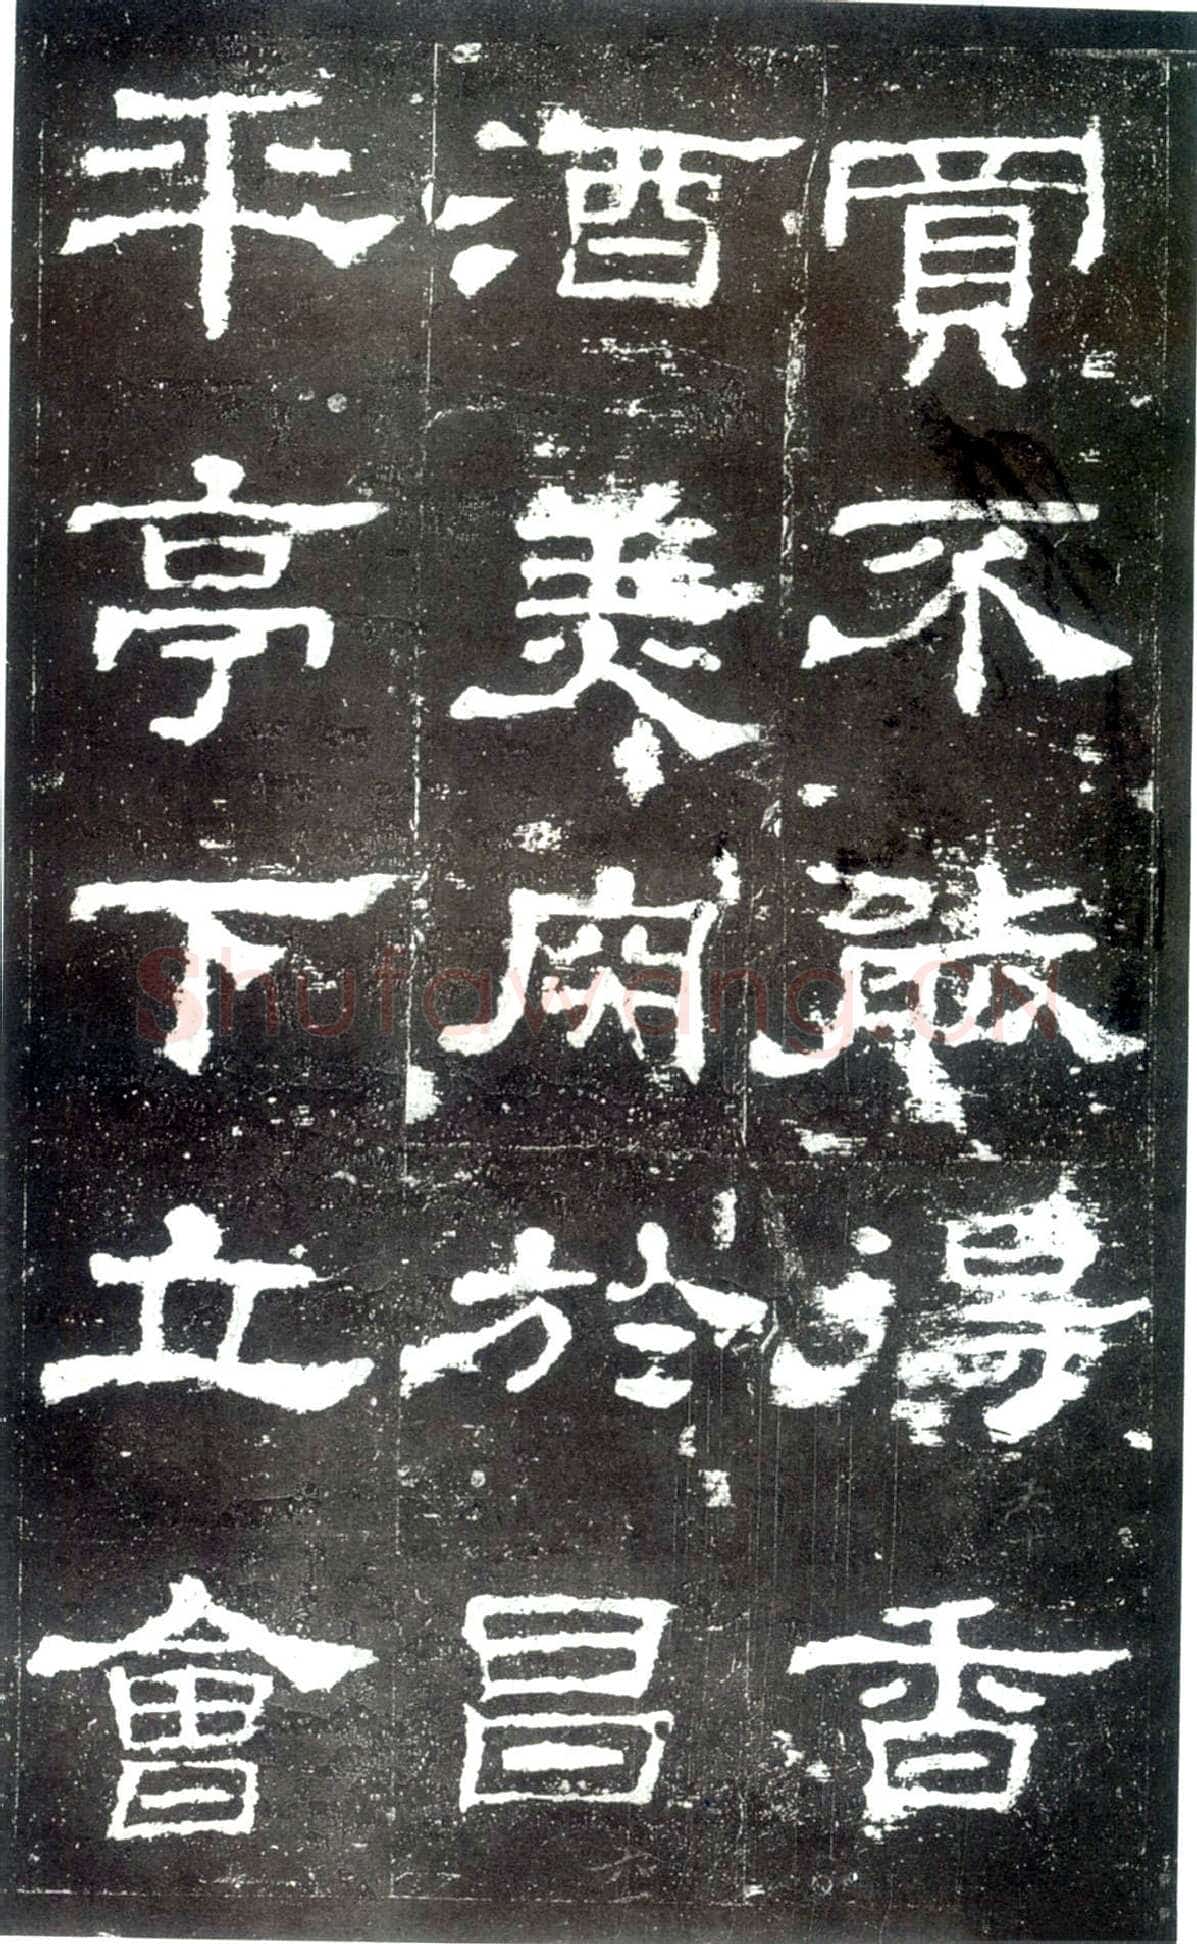 買不能得香
酒美肉於昌
平亭下立會
Shufawang.CN